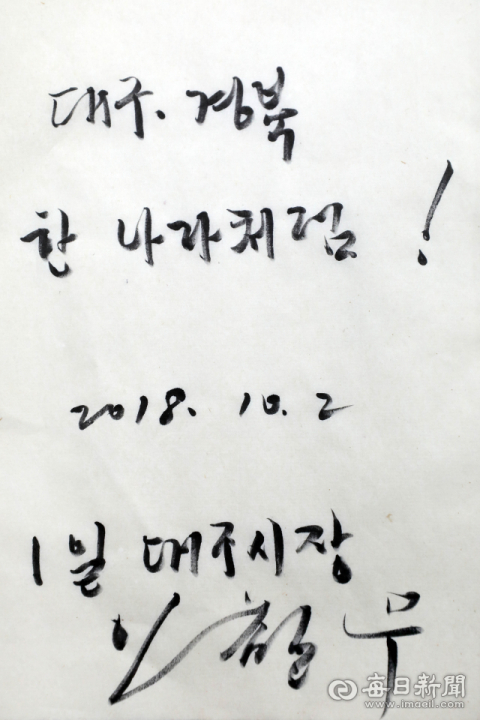 대구. 경북
한 나라처럼!
2018. 10. 2
1일 대구시장
이철우
每日新聞
www.imaeil.com